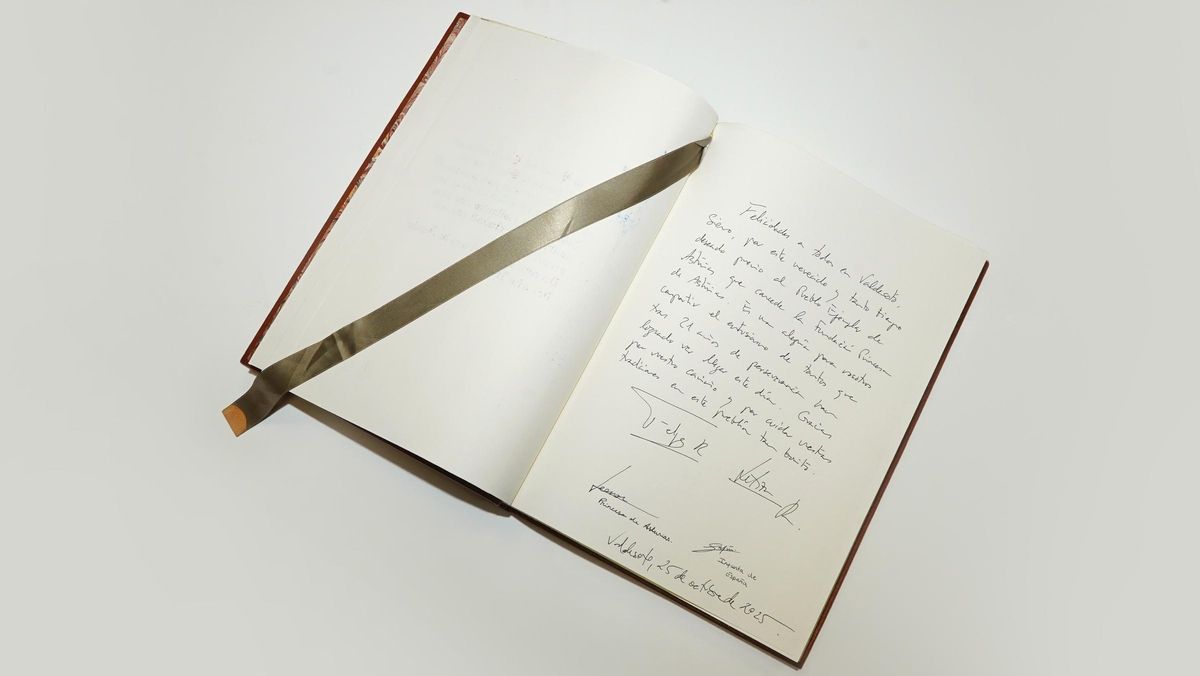 Felicidades a todos en Valdesoto,
Siero, por este merecido y tanto tiempo
deseado premio al Pueblo Ejemplar de
Asturias que concede la Fundación Princesa
de Asturias. Es una alegría para nosotros
compartir el entusiasmo de tantos que
tras 21 años de perseverancia han
logrado ver llegar este día. Gracias
por vuestro cariño y por cuidar vuestras
tradiciones en este pueblín tan bonito.
Felipe R
Letizia R.
Leonor
Princesa de Asturias
Sofía
Infanta de
España
Valdesoto, 25 de octubre de 2025.